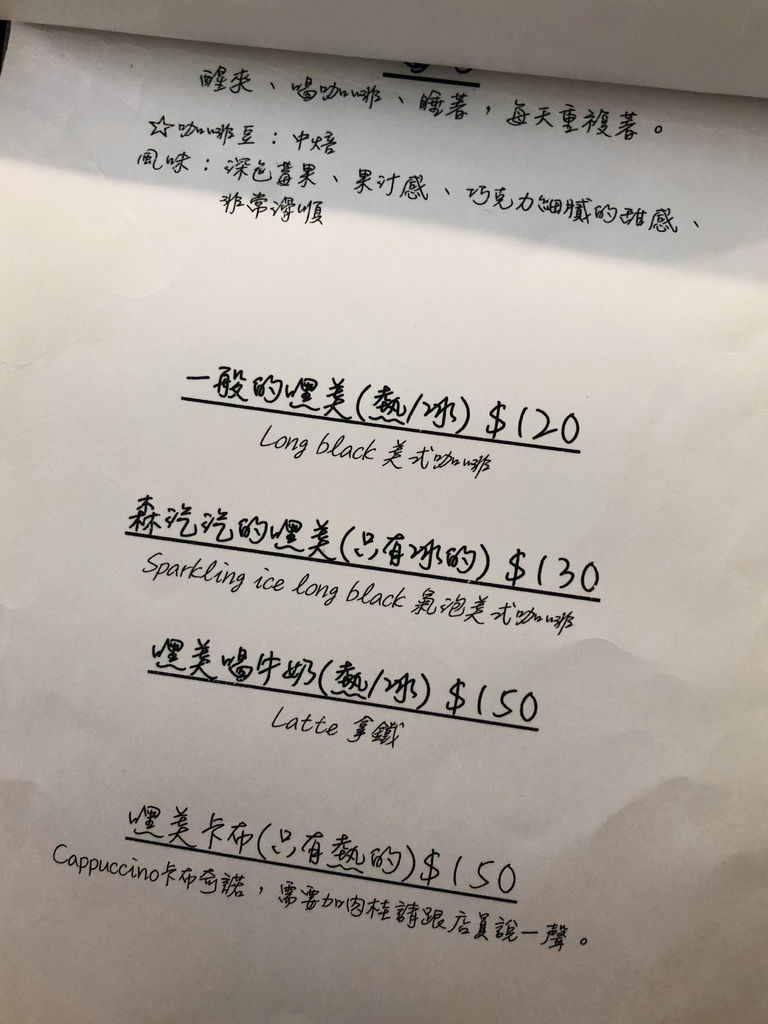 醒來、喝咖啡、睡著，每天重複著。
☆咖啡豆：中焙
風味：深色莓果、果汁感、巧克力細膩的甜感、
非常滑順
一般的嘿美(熱/冰) $120
Long black 美式咖啡
森汽汽的嘿美(只有冰的) $130
Sparkling ice long black 氣泡美式咖啡
嘿美喝牛奶(熱/冰) $150
Latte 拿鐵
嘿美卡布(只有熱的) $150
Cappuccino卡布奇諾，需要加肉桂請跟店員說一聲。